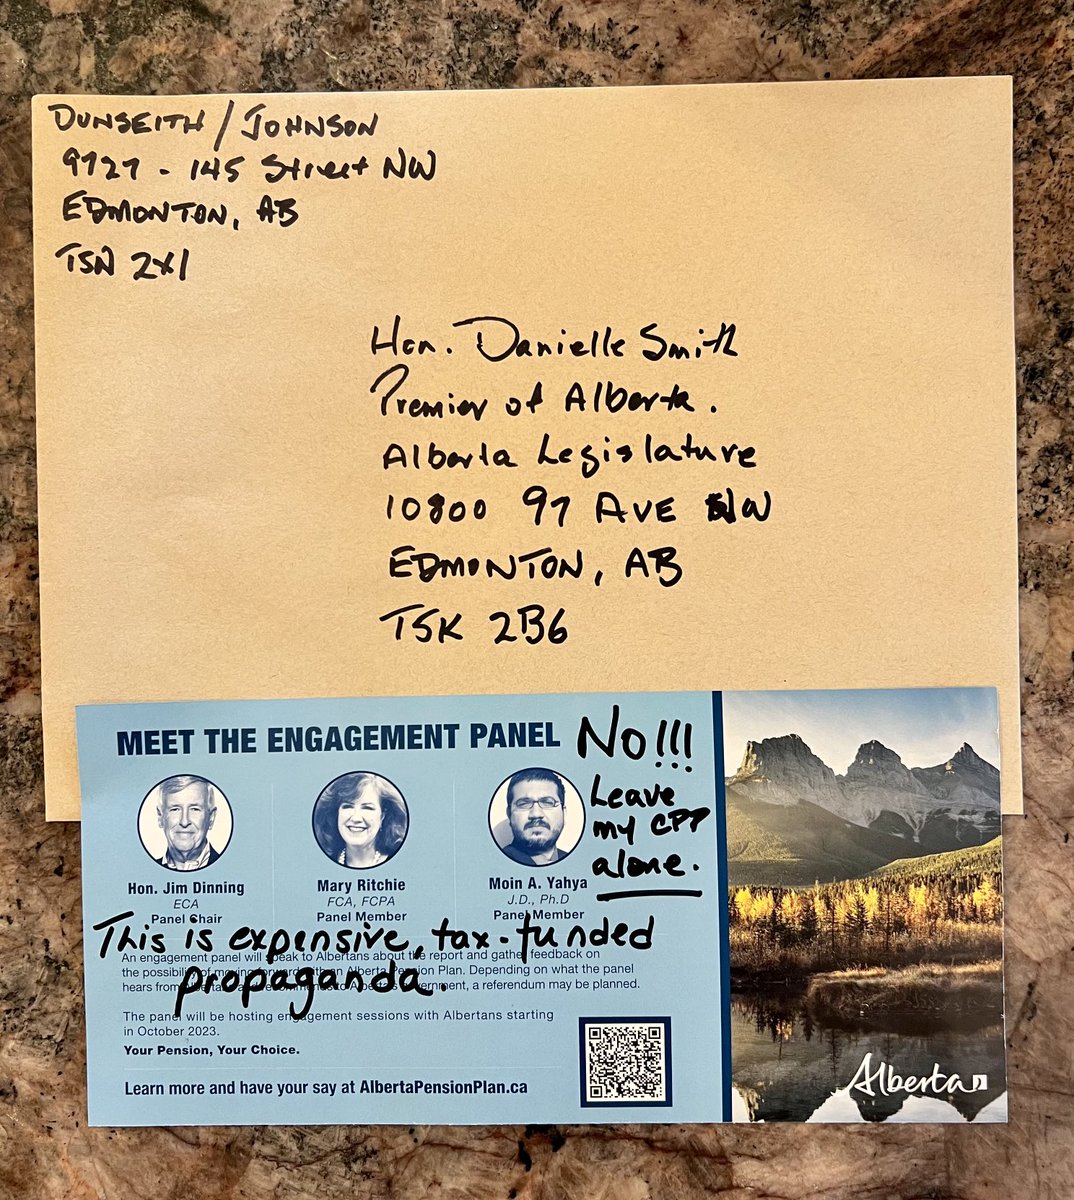 DUNSEITH / JOHNSON
9727 - 145 Street NW
EDMONTON, AB
T5N 2X1
Hon. Danielle Smith
Premier of Alberta.
Alberta Legislature
10800 97 AVE NW
EDMONTON, AB
T5K 2B6
MEET THE ENGAGEMENT PANEL
No!!!
Leave
my CPP
alone.
Hon. Jim Dinning
ECA
Panel Chair
Mary Ritchie
FCA, FCPA
Panel Member
Moin A. Yahya
J.D., Ph.D
Panel Member
This is expensive, tax-funded
propaganda.
An engagement panel will speak to Albertans about the report and gather feedback on
the possibility of moving forward with an Alberta Pension Plan. Depending on what the panel
hears from Albertans and recommends to Alberta's government, a referendum may be planned.
The panel will be hosting engagement sessions with Albertans starting
in October 2023.
Your Pension, Your Choice.
Learn more and have your say at AlbertaPensionPlan.ca
Alberta